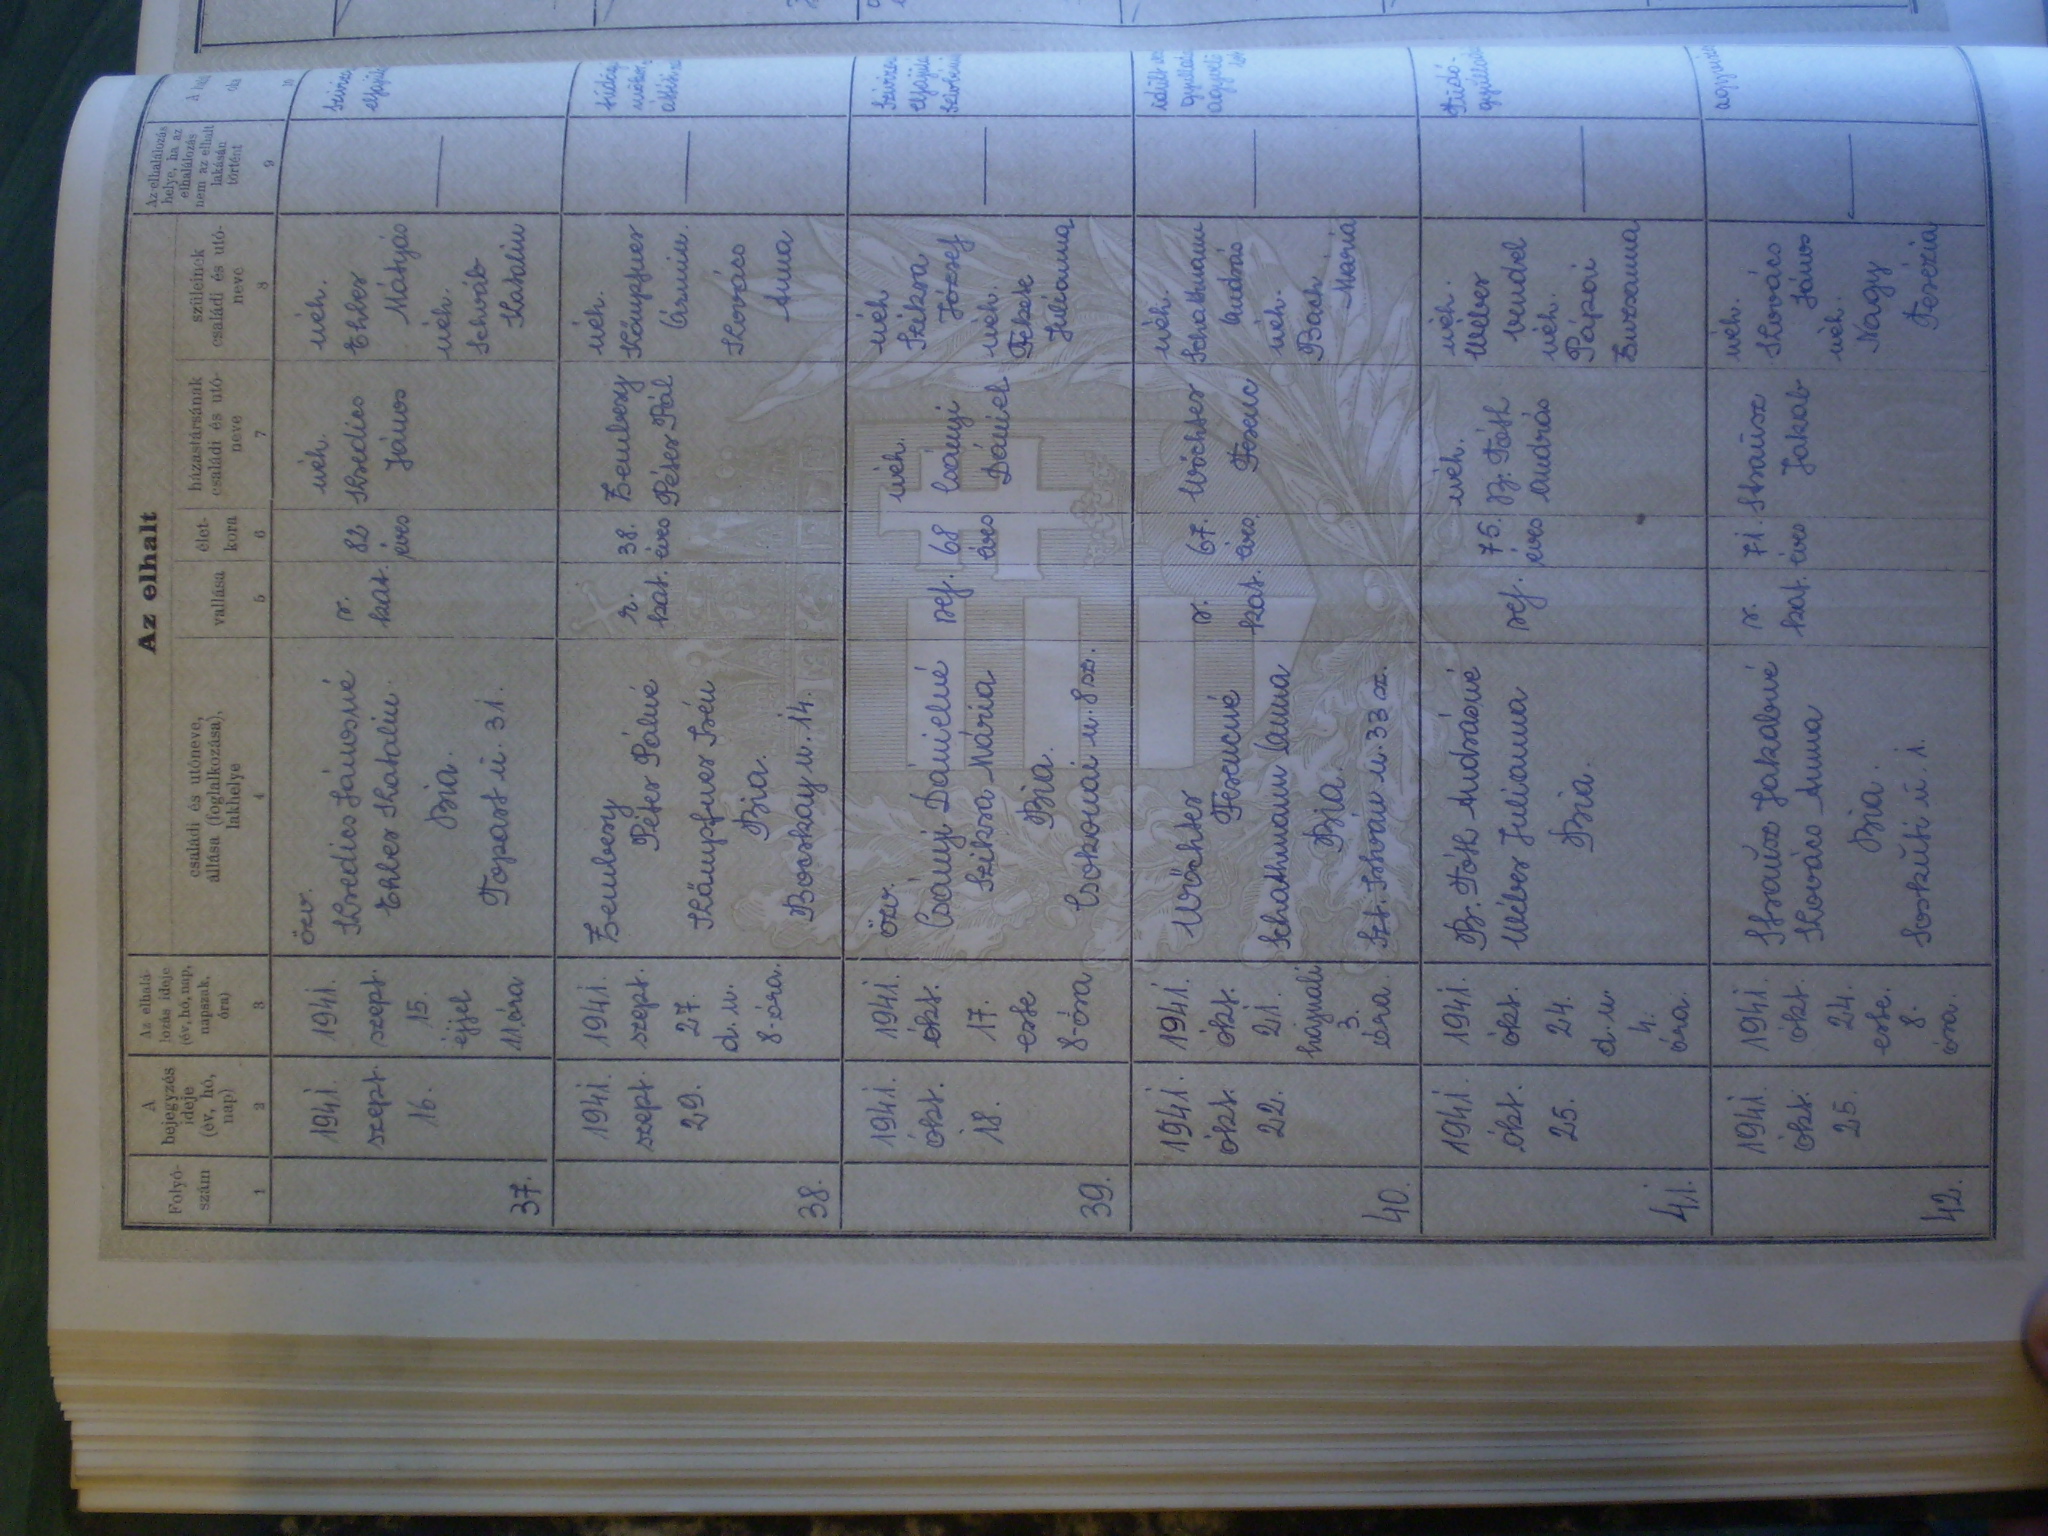 Az elhalt
Folyó-
szám
1
A
bejegyzés
ideje
(év, hó,
nap)
2
Az elhalá-
lozás ideje
(év, hó, nap,
napszak,
óra)
3
családi és utóneve,
állása (foglalkozása),
lakhelye
4
vallása
5
élet-
kora
6
házastársának
családi és utó-
neve
7
szüleinek
családi és utó-
neve
8
Az elhalálozás
helye, ha az
elhalálozás
nem az elhalt
lakásán
történt
9
A
oka
10
37.
1941.
szept.
16.
1941.
szept.
15.
éjjel
11. óra
özv.
János­né
Ehler Katalin
Bia.
u. 31.
r.
kat.
82
éves
néh.
János
néh.
Ehler
Mátyás
néh.
Schwáb
Katalin
38.
1941.
szept.
29.
1941.
szept.
27
d. u.
8-óra.
Péter Pálné
Bia.
Bocskay u. 14.
r.
kat.
38.
éves
Péter Pál
néh.
Ármin.
Kovács
Anna
39.
1941.
okt.
18.
1941.
okt.
17.
este
8-óra
özv.
Csányi Dánielné
Szikra Mária
Bia.
Csokonai u. 8 sz.
ref.
68
éves
néh.
Csányi
Dániel
néh.
Szikra
József
néh.
Fekete
Juliánna
40.
1941.
okt.
22.
1941.
okt.
21.
hajnali
3.
óra.
Wächter
Ferencné
Schathmann Anna
Bia.
Szt. István u. 33 sz.
r.
kat.
67.
éves.
Wächter
Ferenc
néh.
Schathmann
András
néh.
Bach
Mária
41.
1941.
okt.
25.
1941.
okt.
24.
d. u.
4.
óra.
B. Tóth Andrásné
Wéber Julianna
Bia.
ref.
75.
éves
néh.
B. Tóth
András
néh.
Wéber
Vendel
néh.
Pápai
Zsuzsanna
Tüdő-
42.
1941.
okt.
25.
1941.
okt.
24.
este.
8.
óra.
Strausz Jakabné
Kovács Anna
Bia.
Sóskúti u. 1.
r.
kat.
71.
éves
Strausz
Jakab
néh.
Kovács
János
néh.
Nagy
Terézia